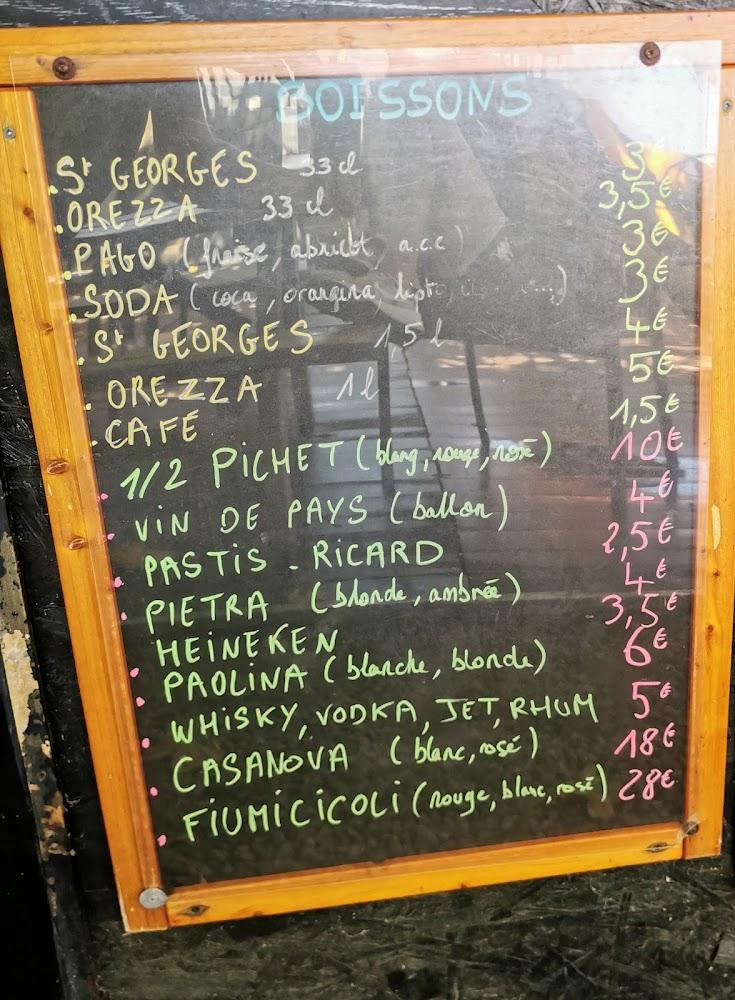 BOISSONS
. St GEORGES 33 cl 3€
. OREZZA 33 cl 3,5€
. PAGO (fraise, abricot a.c.c) 3€
. SODA (coca, orangina, lipto, 3€
. St GEORGES 1,5 l 4€
. OREZZA 1 l 5€
. CAFÉ 1,5€
. 1/2 PICHET (blanc, rouge, rosé) 10€
. VIN DE PAYS (ballon) 4€
. PASTIS - RICARD 2,5€
. PIETRA (blonde, ambrée) 4€
. HEINEKEN 3,5€
. PAOLINA (blanche, blonde) 6€
. WHISKY, VODKA, JET, RHUM 5€
. CASANOVA (blanc, rosé) 18€
. FIUMICICOLI (rouge, blanc, rosé) 28€